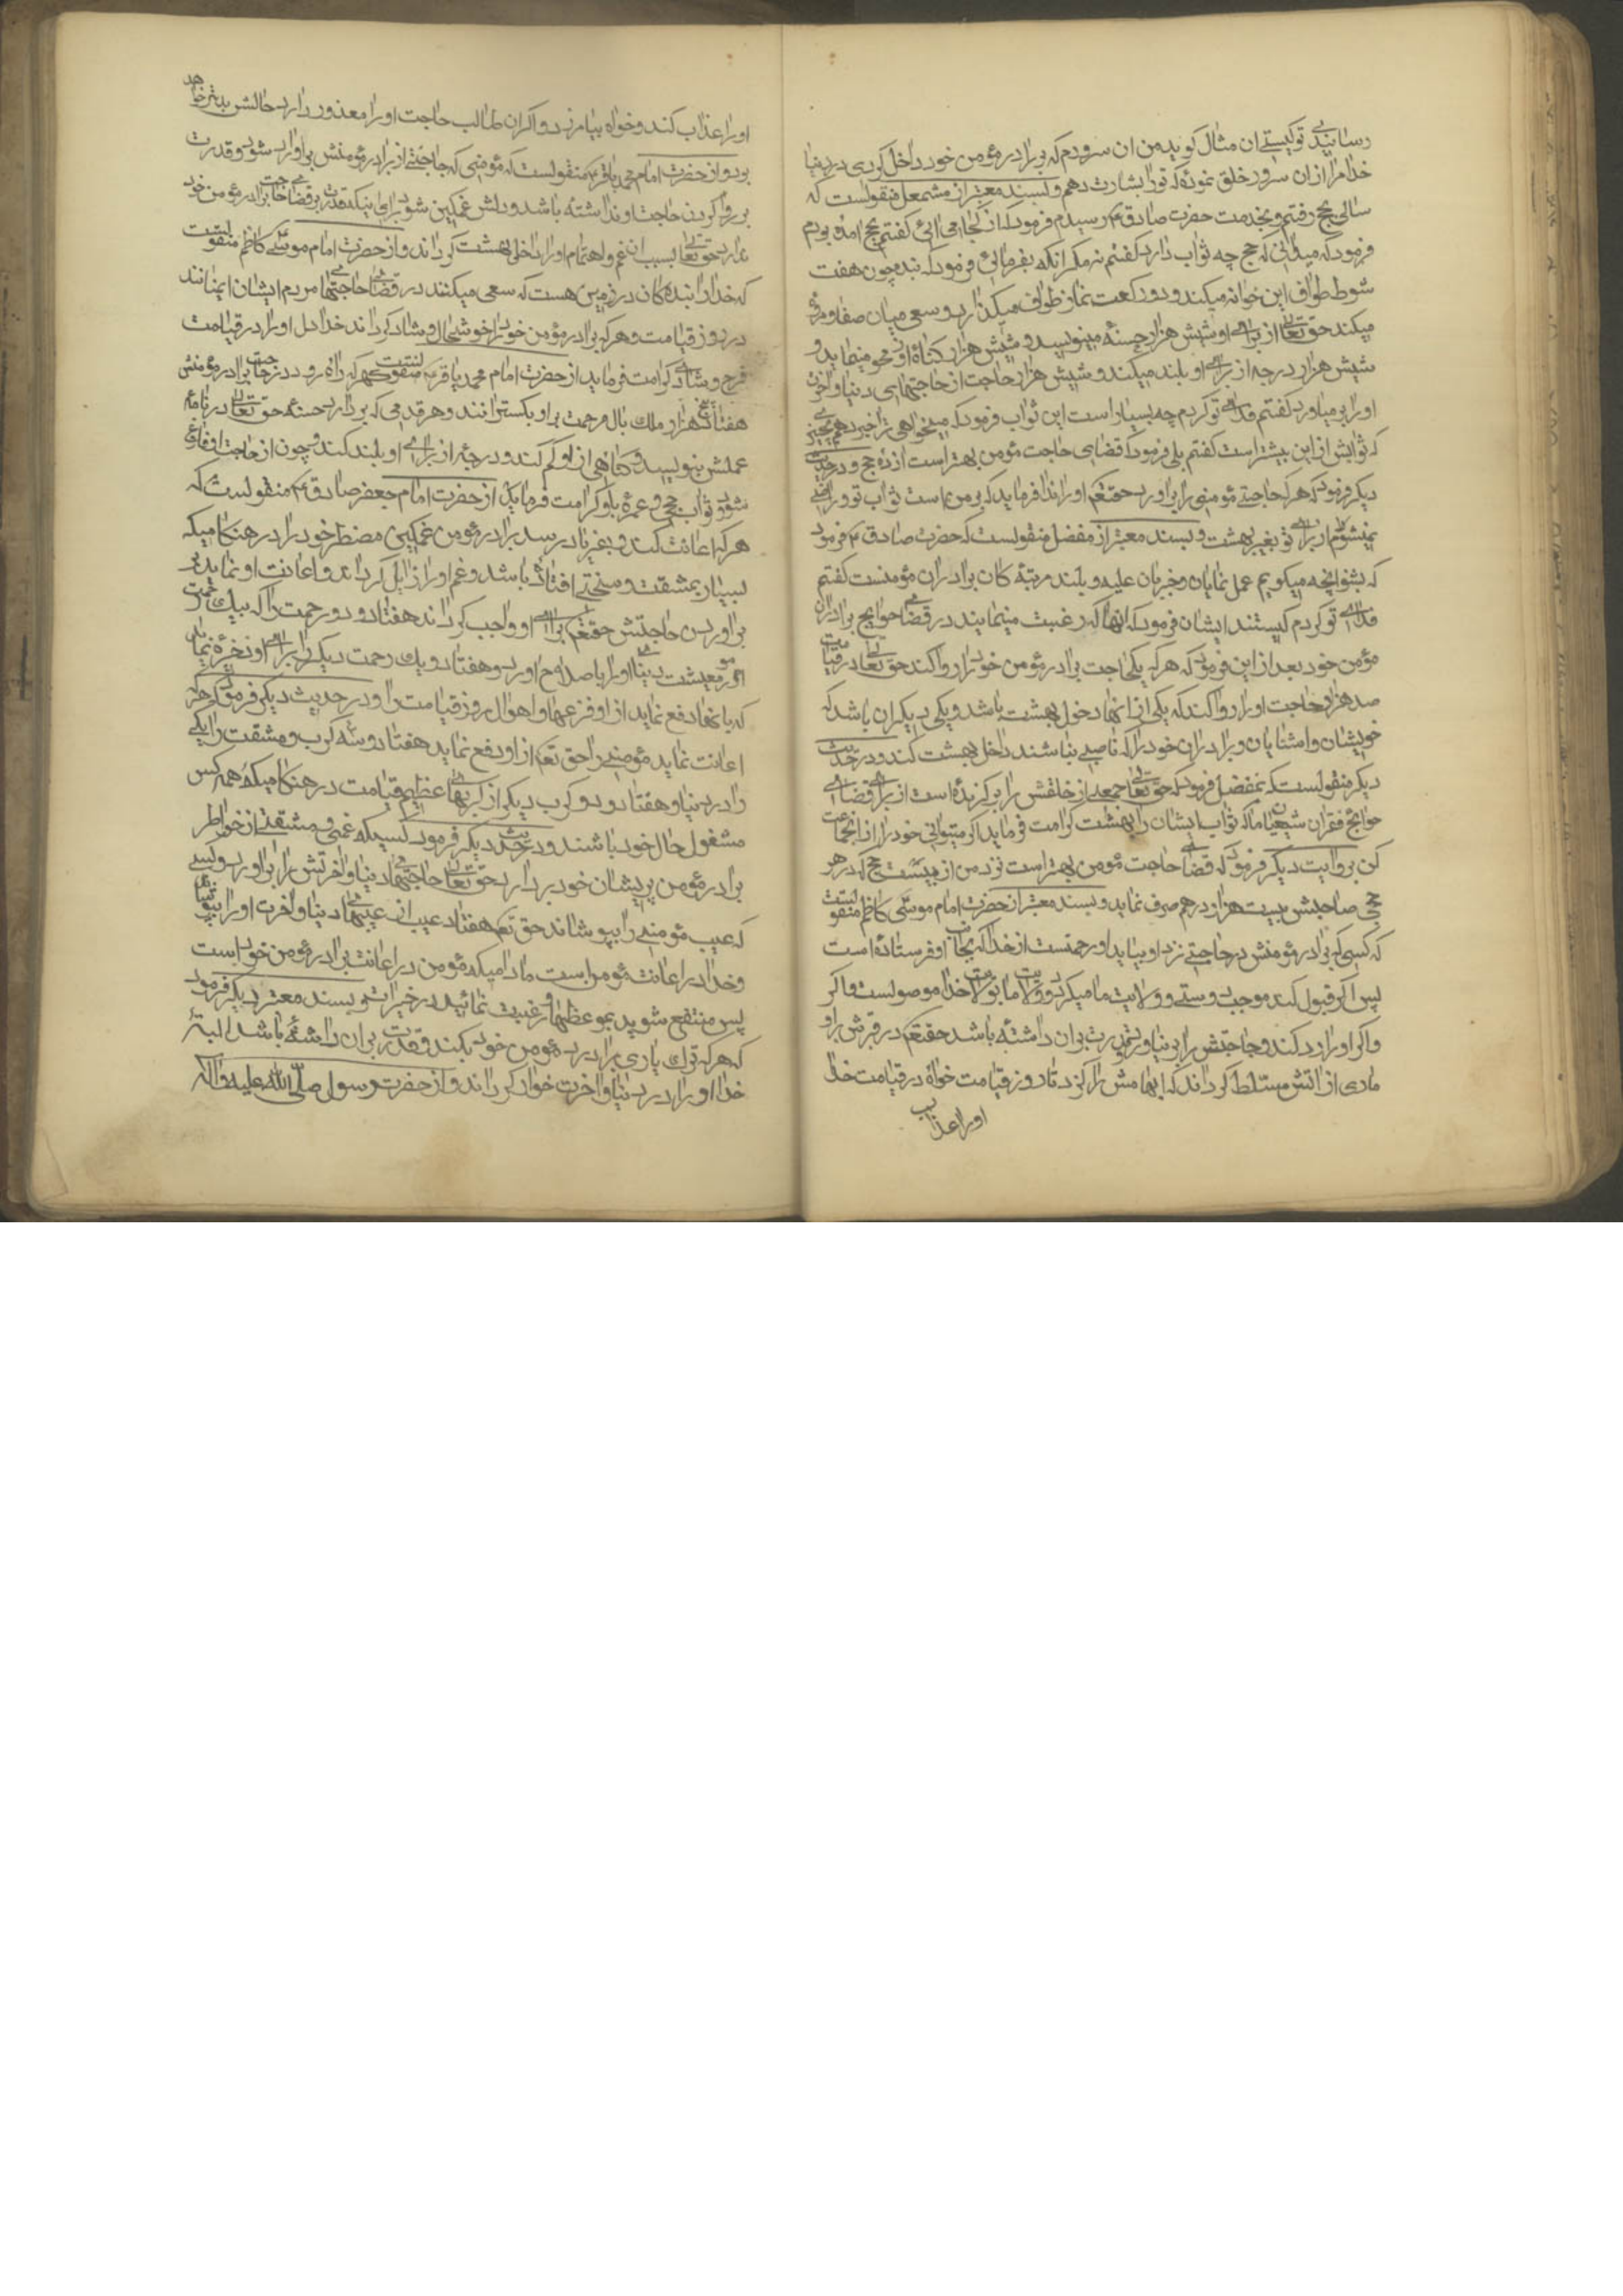 رسانیدی تو کیستی ان مثال کوید من ان سرورم که بر برادر مؤمن خود داخل کردی در دنیا
خدا مرا از ان سرور خلق نموده که تورا بشارت دهم و بسند معتبر از مشمعل منقولست که
سالی بحج رفتم و بخدمت حضرت صادق ع رسیدم فرمود که از کجا می ائی کفتم بحج امده بودم
فرمود که میدانی که حج چه ثواب دارد کفتم نه مکر انکه بفرمائی فرمود که بنده چون هفت
شوط طواف این خوانه میکند و دو رکعت نماز طواف میکذارد و سعی میان صفا و مروه
میکند حق تعالی از برای او شش هزار حسنه مینویسد و شش هزار کناه او محو مینماید و
شش هزار درجه از برای او بلند میکند و شش هزار حاجت از حاجتهای دنیا و اخرت
او را بر میاورد کفتم فدای تو کردم چه بسیار است این ثواب فرمود که میخواهی ترا خبر دهم بچیزی
که ثوابش از این بیشتر است کفتم بلی فرمود که قضای حاجت مؤمن بهتر است از ده حج و در حدیث
دیکر فرمود که هر که حاجت مؤمنی را براورد حقتعم او را ندا فرماید که بر من است ثواب تو و راضی
نمیشوم از برای تو بغیر بهشت و بسند معتبر از مفضل منقولست که حضرت صادق ع فرمود
که بشنو انچه میکویم عمل نمایان و خبر بان علیه و بلند مرتبه کان برادران مؤمنست کفتم
فدای تو کردم کیستند ایشان فرمود که انها که رغبت مینمایند در قضای حوایج برادران
مؤمن خود بعد از این فرمود که هر که یکحاجت برادر مؤمن خود را روا کند حق تعالی در قیامت
صد هزار حاجت او را روا کند که یکی از انها دخول بهشت باشد و یکی دیکران باشد که
خویشان و اشنایان و برادران خود را که ناصبی نباشند داخل بهشت کند و در حدیث
دیکر منقولست که بمفضل فرمود که حق تعالی جمعی از خلقش را برکزیده است از برای قضای
حوایج فقرای شیعیان ما که ثواب ایشان را بهشت کرامت فرماید اکر میتوانی خود را از انجماعت
کن بروایت دیکر فرمود که قضای حاجت مؤمن بهتر است نزد من از بیست حج که در هر
حجی صاحبش بیست هزار درهم صرف نماید و بسند معتبر از حضرت امام موسی کاظم منقولست
که کسی که برادر مؤمنش در حاجتی نزد او بیاید او رحمتست از خدا که بجانب او فرستاده است
پس اکر قبول کند موجب دوستی و ولایت ما میکردد و ولایت ما بولایت خدا موصولست و اکر
و اکر او را رد کند و حاجتش را بر نیاورد و قدرت بران داشته باشد حقتعم در قبرش بر او
ماری از اتش مسلط کرداند که ابهامش را کزد تا روز قیامت خواه در قیامت خدا
او را عذاب
او را عذاب کند و خواه بیامرزد و اکر ان طالب حاجت او را معذور دارد حالش بدتر خواهد
بود و از حضرت امام محمد باقر ع منقولست که مؤمنی که حاجتی از برادر مؤمنش براو وارد شود و قدرت
بر روا کردن حاجت او نداشته باشد و دلش غمکین شود برای اینکه قدرت بر قضای حاجت برادر مؤمن خود
ندارد حق تعالی بسبب ان غم و اهتمام او را داخل بهشت کرداند و از حضرت امام موسی کاظم منقولست
که خدا را بنده کان در زمین هست که سعی میکنند در قضای حاجتهای مردم ایشان ایمنانند
در روز قیامت و هر که برادر مؤمن خود را خوشحال و شاد کرداند خدا دل او را در قیامت
فرح و شادی کرامت فرماید از حضرت امام محمد باقر ع منقولست که هر که راه رود در حاجت برادر مؤمنش
هفتاد هزار ملک بال مرحمت بر او بکسترانند و هر قدمی که بردارد حسنه حق تعالی در نامه
عملش بنویسد و کناهی از او کم کند و درجه از برای او بلند کند و چون از حاجت او فارغ
شود ثواب حج و عمره باو کرامت فرماید از حضرت امام جعفر صادق ع منقولست که
هر که اعانت کند و بفریاد رسد برادر مؤمن غمکین مضطر خود را در هنکامیکه
بسیار بمشقت و سختی افتاده باشد و غم او را زایل کرداند و اعانت او نماید در
براوردن حاجتش حقتعم برای او واجب کرداند هفتاد و دو رحمت را که بیک رحمت
امور معیشت دنیای او را باصلاح اورد و هفتاد و یک رحمت دیکر را برای او ذخیره نماید
که بانها دفع نماید از او فزعها و اهوال روز قیامت را و در حدیث دیکر فرمود که هر که
اعانت نماید مؤمنی را حق تعم از او دفع نماید هفتاد و سه کرب و مشقت را یکی
را در دنیا و هفتاد و دو کرب دیکر از کربهای عظیم قیامت در هنکامیکه همه کس
مشغول حال خود باشند و در حدیث دیکر فرمود کسیکه غمی و مشقتی از خواطر
برادر مؤمن پریشان خود بردارد حق تعالی حاجتهای دنیا و اخرتش را براورد و کسی
که عیب مؤمنی را بپوشاند حق تعم هفتاد عیب از عیبهای دنیا و اخرت او را بپوشاند
و خدا در اعانت مؤمن است مادامیکه مؤمن در اعانت برادر مؤمن خود است
پس منتفع شوید بموعظها و رغبت نمائید در خیرات و بسند معتبر دیکر فرمود
که هر که ترک یاری برادر مؤمن خود بکند و قدرت بران داشته باشد البته
خدا او را در دنیا و اخرت خوار کرداند و از حضرت رسول صلی الله علیه و اله